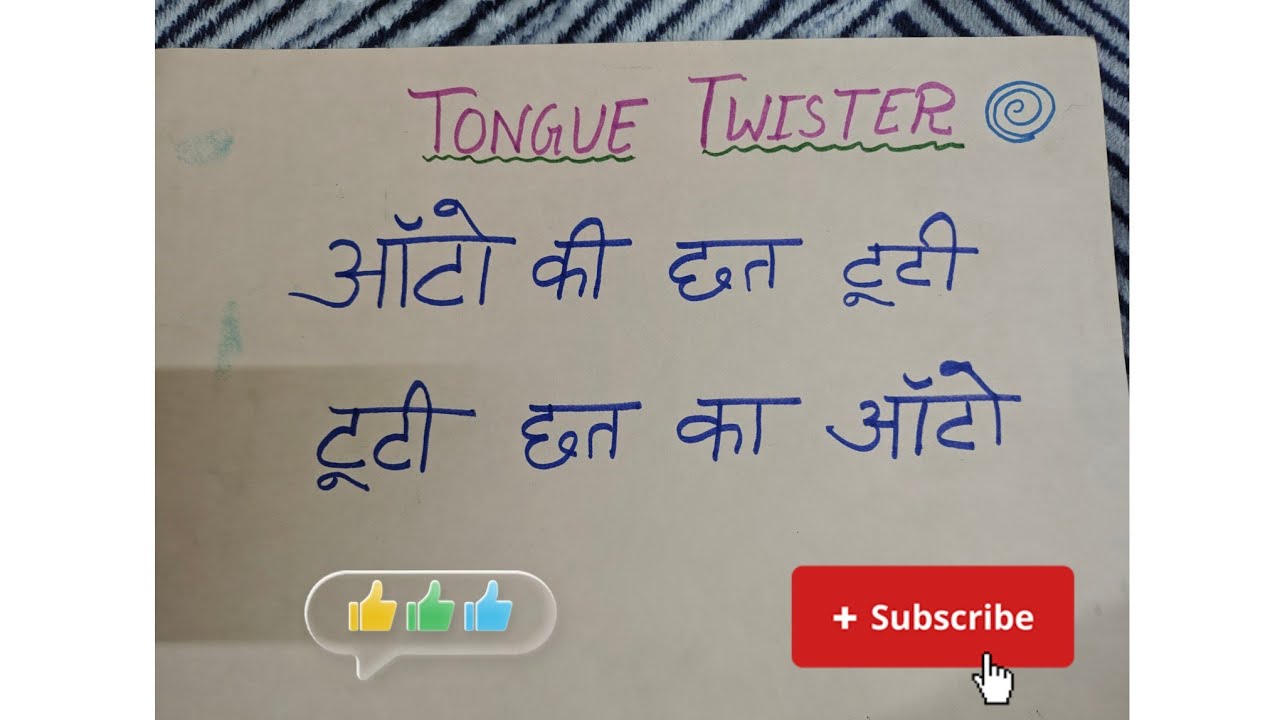 TONGUE TWISTER
ऑटो की छत टूटी
टूटी छत का ऑटो
+ Subscribe